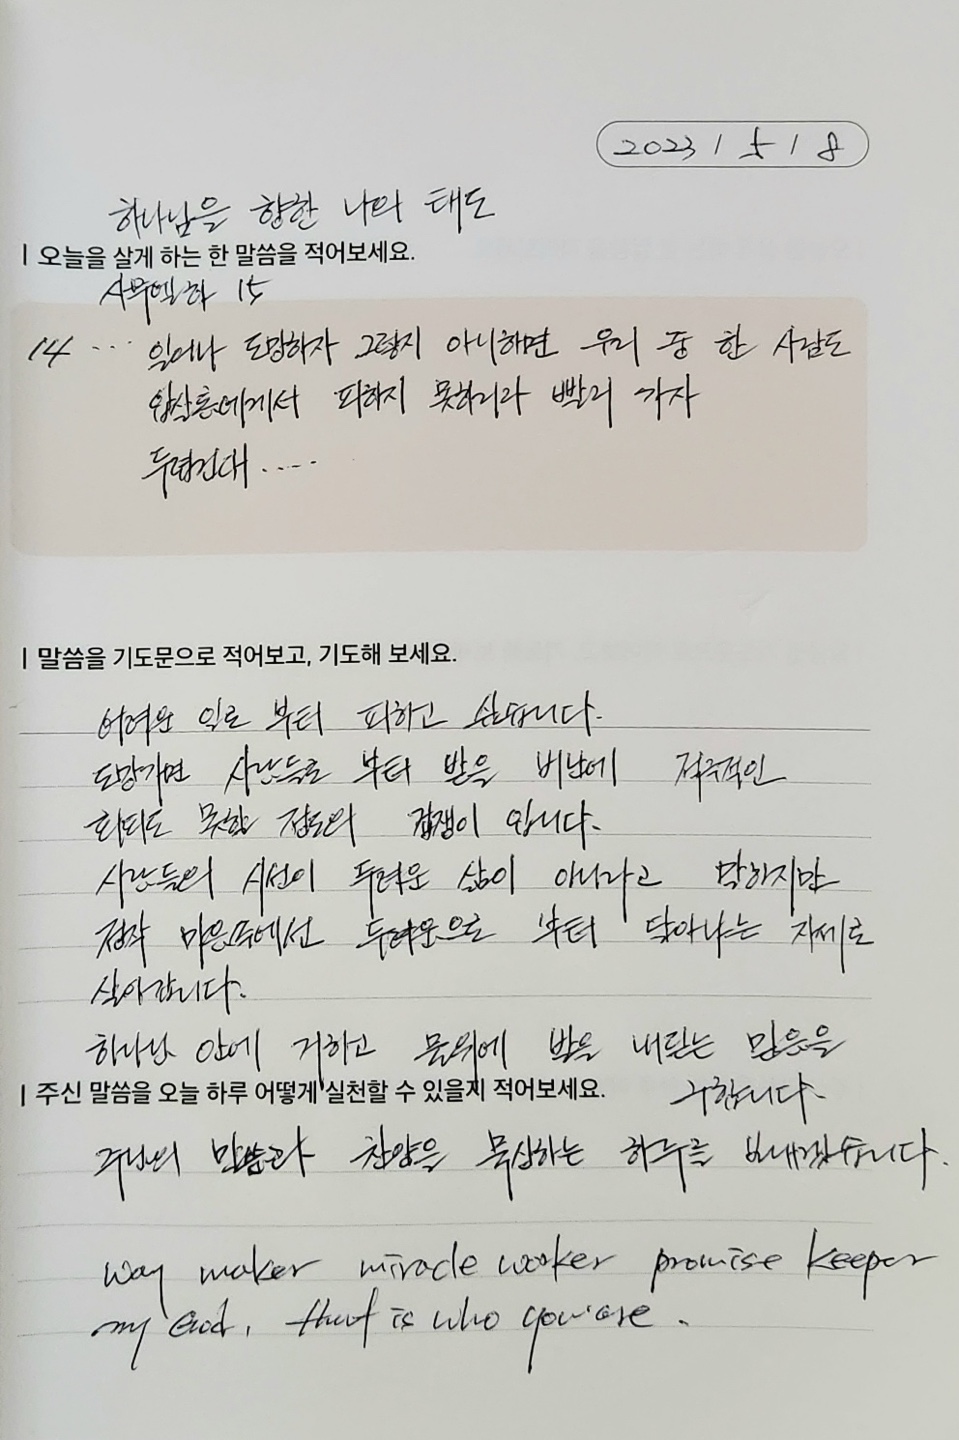 2023 / 5 / 8
하나님을 향한 나의 태도
| 오늘을 살게 하는 한 말씀을 적어보세요.
사무엘하 15
14 ... 일어나 도망하자 그렇지 아니하면 우리 중 한 사람도
압살롬에게서 피하지 못하리라 빨리 가자
두렵건대 .....
| 말씀을 기도문으로 적어보고, 기도해 보세요.
어려운 일로 부터 피하고 싶습니다.
도망가면 사람들로 부터 받을 비난에 적극적인
회피도 못할 정도의 겁쟁이 입니다.
사람들의 시선이 두려운 삶이 아니라고 말하지만
정작 마음속에선 두려움으로 부터 달아나는 자세로
살아갑니다.
하나님 안에 거하고 물위에 발을 내딛는 믿음을
구합니다.
| 주신 말씀을 오늘 하루 어떻게 실천할 수 있을지 적어보세요.
주님의 말씀과 찬양을 묵상하는 하루를 보내겠습니다.
way maker miracle worker promise keeper
my God, that is who you are.